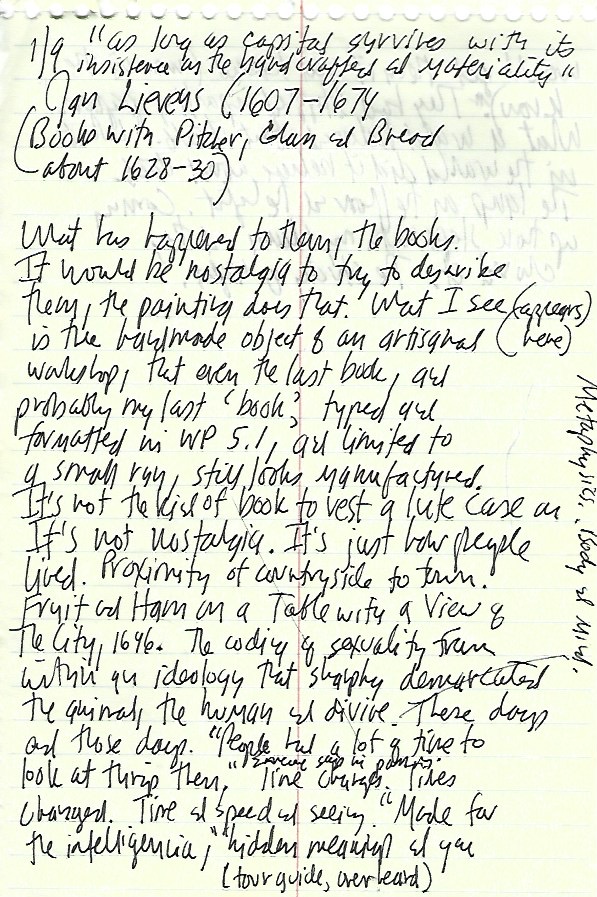 1/9 "as long as capital survives with its
insistence on the handcrafted at materiality"
Jan Lievens (1607–1674
(Books with Pitcher, Glass and Bread
about 1628-30)
What has happened to them, the books.
It would be nostalgia to try to describe
them, the painting does that. What I see (appears)
is the handmade object of an artisanal (here)
workshop, that even the last book, and
probably my last 'book', typed and
formatted in WP 5.1, and limited to
a small run, still looks manufactured.
It's not the kind of book to rest a lute case on
It's not nostalgia. It's just how people
lived. Proximity of countryside to town.
Fruit and Ham on a Table with a View of
the City, 1646. The coding of sexuality from
within an ideology that sharply demarcated
the animal, the human and divine. These days
and those days. "People had a lot of time to
look at things then," Time changes. Times
someone says in passing.
changed. Time and speed and seeing. "Made for
the intelligencia," "hidden meanings and you
(tour guide, overheard)
Metaphysics. Body and Mind.